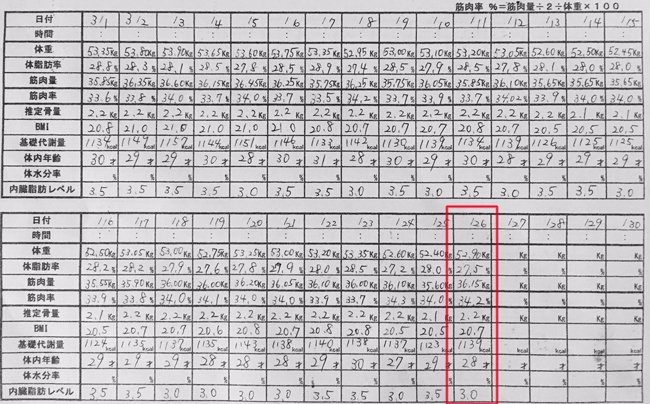 筋肉率 %=筋肉量÷2÷体重×100
日付 3/1 3/2 /3 /4 /5 /6 /7 /8 /9 /10 /11 /12 /13 /14 /15
時間 : : : : : : : : : : : : : : :
体重 53.35Kg 53.80Kg 53.90Kg 53.65Kg 53.60Kg 53.75Kg 53.35Kg 52.95Kg 53.00Kg 53.10Kg 53.20Kg 53.05Kg 52.60Kg 52.50Kg 52.45Kg
体脂肪率 28.8% 28.3% 28.1% 28.5% 27.8% 28.5% 28.9% 27.4% 28.5% 27.9% 28.5% 27.8% 28.1% 28.0% 28.0%
筋肉量 35.85Kg 36.35Kg 36.60Kg 36.15Kg 36.45Kg 36.25Kg 35.75Kg 36.25Kg 35.75Kg 36.05Kg 35.85Kg 36.10Kg 35.65Kg 35.65Kg 35.65Kg
筋肉率 33.6% 33.8% 34.0% 33.7% 34.0% 33.7% 33.5% 34.2% 33.7% 33.9% 33.7% 34.02% 33.9% 34.0% 34.0%
推定骨量 2.2Kg 2.2Kg 2.2Kg 2.2Kg 2.2Kg 2.2Kg 2.2Kg 2.2Kg 2.2Kg 2.2Kg 2.2Kg 2.2Kg 2.2Kg 2.1Kg 2.1Kg
BMI 20.8 21.0 21.0 21.0 21.0 21.0 20.8 20.7 20.7 20.7 20.8 20.7 20.5 20.5 20.5
基礎代謝量 1134kcal 1149kcal 1157kcal 1144kcal 1151kcal 1146kcal 1133kcal 1142kcal 1130kcal 1139kcal 1134kcal 1139kcal 1126kcal 1125kcal 1125kcal
体内年齢 30才 29才 29才 30才 28才 30才 31才 28才 30才 29才 30才 28才 29才 29才 29才
体水分率 % % % % % % % % % % % % % % %
内臓脂肪レベル 3.5 3.5 3.5 3.5 3.0 3.5 3.5 3.0 3.5 3.0 3.5 3.0 3.5 3.5 3.0
日付 /16 /17 /18 /19 /20 /21 /22 /23 /24 /25 /26 /27 /28 /29 /30
時間 : : : : : : : : : : : : : : :
体重 52.50Kg 53.05Kg 53.00Kg 52.75Kg 53.25Kg 53.00Kg 53.20Kg 53.35Kg 52.60Kg 52.40Kg 52.90Kg Kg Kg Kg Kg
体脂肪率 28.2% 28.2% 27.9% 27.6% 27.8% 27.9% 28.0% 28.5% 27.2% 28.0% 27.5% % % % %
筋肉量 35.55Kg 35.90Kg 36.00Kg 36.00Kg 36.20Kg 36.05Kg 36.10Kg 36.00Kg 36.10Kg 35.60Kg 36.15Kg Kg Kg Kg Kg
筋肉率 33.9% 33.8% 34.0% 34.1% 34.0% 34.0% 33.9% 33.7% 34.3% 34.0% 34.2% % % % %
推定骨量 2.1Kg 2.2Kg 2.2Kg 2.2Kg 2.2Kg 2.2Kg 2.2Kg 2.2Kg 2.2Kg 2.1Kg 2.2Kg Kg Kg Kg Kg
BMI 20.5 20.7 20.7 20.6 20.8 20.7 20.8 20.8 20.5 20.5 20.7
基礎代謝量 1124kcal 1135kcal 1137kcal 1135kcal 1143kcal 1138kcal 1140kcal 1138kcal 1137kcal 1123kcal 1139kcal kcal kcal kcal kcal
体内年齢 29才 29才 29才 28才 28才 28才 29才 30才 27才 29才 28才 才 才 才 才
体水分率 % % % % % % % % % % % % % % %
内臓脂肪レベル 3.5 3.5 3.0 3.0 3.0 3.0 3.5 3.5 3.0 3.5 3.0